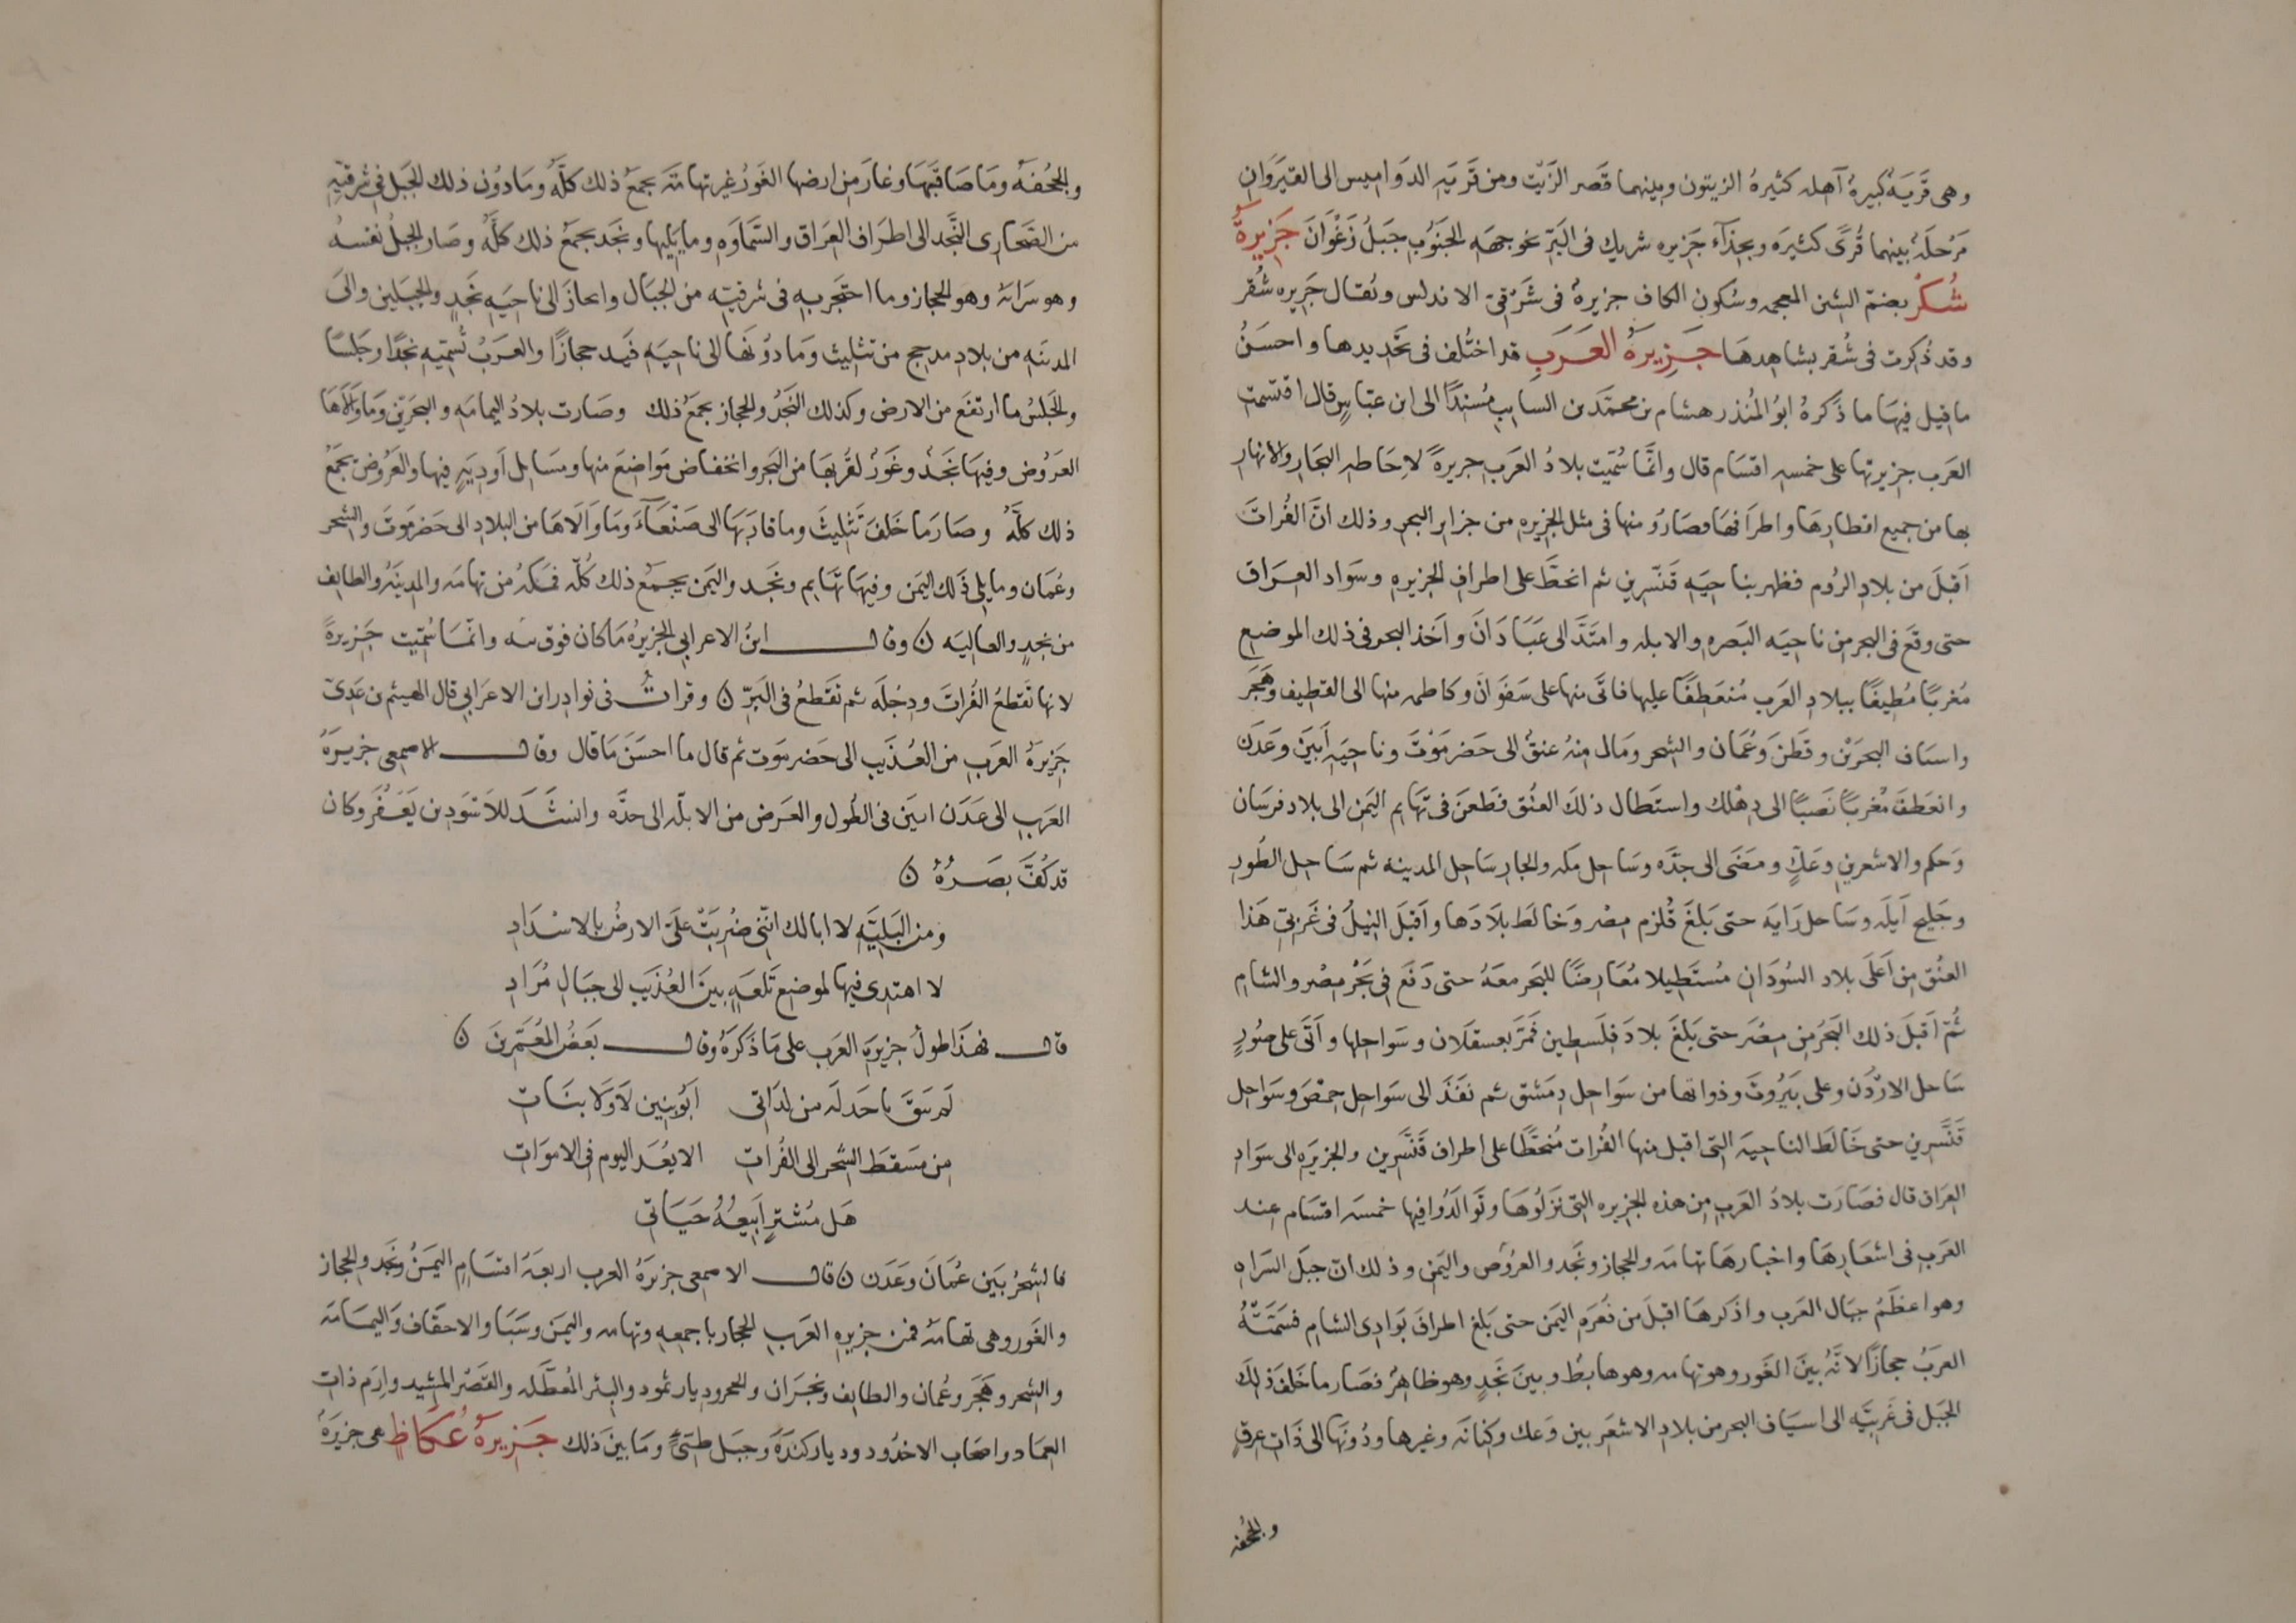 وهى قَريَةٌ كبيرةٌ آهله كثيرةُ الزيتون وبينهما قَصر الزَيْت ومن قَريَةِ الدَوَاميس الى القيَرَوَانِ
مَرْحلَةٌ بينهما قُرىً كثيرَه وبحِذَآء جَزيره شريك فى البَرّ نحو جهَهِ الجَنُوب جَبَلُ زَغْوَانَ جَزِيرةُ
شُكرْ بضمّ الشين المعجمه وسُكون الكاف جزيرةٌ فى شَرْقىّ الاندلس ويُقال جَزيره شُقر
وقد ذُكرت فى شُقر بشاهِدهَا جَزِيرَةُ العَرَبِ قد اختُلف فى تحَديدها واحسَنُ
ما قيل فيهَا ما ذَكرهُ ابوُ المُنذر هشام بن محمّد بن السايب مُسندًا الى ابن عبّاسٍ قال اقتسمت
العَرَب جزيرتها على خمسه اقسَام قال وانَّما سُمّيَت بلادُ العَرَب جزيرةً لاِحَاطهِ البحَارِ والانهارِ
بها من جميع اقطارِهَا واطرَافهَا فصَارُو منها فى مثل الجزيره من جزاير البحر وذلك انّ الفُراتَ
اَقبلَ من بلادِ الرُوم فظهر بناحيَهِ قَنّسرين ثم انحَطَّ على اطرافِ الجزيرهِ وسَواد العِرَاق
حتى وقَعَ فى البحر من ناحيَه البَصره والابله وامتَدَّ الى عَبَادَانَ واَخذ البحر فى ذلك الموضع
مُغربًا مُطِيفًا ببلادِ العَرَب مُنعَطِفًا عليها فاتَى منها على سَفَوَانَ وكاظمه منها الى القطيف وهَجَر
واسيَاف البحرَيْن وقَطَنَ وعُمَان والشحر ومَال منهُ عنقٌ الى حَضرمَوْتَ وناحِيَهِ اَبيَنَ وعَدَن
وانعَطفَ مُغربًا نَصبًا الى دِهْلك واستَطال ذلكَ العنُق فَطَعنَ فى تهَايم اليَمن الى بلاد فرسَان
وَحكم والاشعرين وعَكٍّ ومضَى الى جدَّه وسَاحِل مَكه والجارِ سَاحِل المدينه ثم سَاحِل الطُور
وخَليج اَيلَه وسَاحل رَايَه حتى بَلغَ قُلزم مِصْر وَخَالَط بلَادَهَا واَقبَلَ النِيلُ فى غَرْبىّ هَذا
العنُق من اَعلَى بلاد السُودَان مُستَطيلا مُعَارِضًا للبحر معَهُ حتى دَفَع فى بحَر مِصْر والشام
ثُمّ اَقبلَ ذلك البَحرُ من مِصْر حتى بَلغَ بلادَ فلَسطِين فمَرَّ بعسقلَان وسَواحلِها واَتَى على صُورٍ
سَاحل الاردُن وعلى بَيرُوتَ وذواتها من سَواحل دمَشق ثم نفَذَ الى سَواحل حِمْصَ وسَواحِل
قَنّسرين حتى خَالَط الناحيَه التى اقبل منها الفُرات مُنحطًّا على اطرافِ قَنّسرين والجزيرَه الى سَوَادِ
العِرَاق قال فصَارَت بلادُ العَرَب من هذه الجزيره التى نَزلُوهَا وتَوَالَدُوا فيها خمسَه اقسَام عِند
العَرَب فى اشعَارهَا واخبارهَا تهامَه والحجاز ونَجَد والعرُوض واليَمن وذلك انّ جبَل السَراهِ
وهو اعظَمُ جبَال العَرَب واذكرهَا اقبلَ من قَعرهِ اليَمن حتى بَلغ اطرافَ بَوَادِى الشام فسَمّتهُ
العرَبُ حجازًا لانَّهُ بَينَ الغَور وهو تهامه وهو هابطٌ وبينَ نَجَدٍ وهو ظاهِرٌ فصَار ما خَلفَ ذلكَ
الجَبَل فى غَربِيّه الى اسيَاف البحر من بلادِ الاشعَريين وَعك وكنانَه وغيرها ودُونَهَا الى ذَات عِرقٍ
والجُحفه
والجُحفَهُ ومَا صَاقَبَهَا وغارَ من ارضها الغَورُ غورُ تهامَهَ يجمعُ ذلك كلَّهُ ومَا دوُن ذلك الجَبل فى شرقيّهِ
من الصَحارِى النَّجَد الى اطرَاف العِرَاق والسَّمَاوَهِ وما يَليها ونجَد يجمَعُ ذلك كلَّهُ وصَار الجبلُ نفسهُ
وهو سَراتهُ وهو الحجاز وما احتجَز بهِ فى شرقيّه من الجبَال وانحازَ الى ناحيَهِ نَجَدٍ والجبَلين والىَ
المدينَهِ من بلادِ مدحج من تثليث ومَا دوُنَهَا الى ناحيَهِ فَيد حجازًا والعرَبُ تُسَمّيهِ نجَدًا وجَلسًا
والجَلسُ ما ارتفَع من الارض وكذلك النَجَدُ والحجاز يجمَعُ ذلك وصَارت بلادُ اليمامَهِ والبحرَيْن ومَا وَالَاهَا
العَرُوض وفيهَا نَجَدٌ وغَورٌ لقُربهَا من البَحر وانخفاض مَواضِعَ منها ومسَايل اَودِيَهٍ فيها والعَرُوض يجمَعُ
ذلك كلَّهُ وصَارَ مَا خَلفَ تَثليثَ وما قارَبَهَا الى صَنْعَآءَ ومَا وَالَاهَا من البلادِ الى حَضرمَوت والشحر
وعُمَان وما يلى ذَلك اليَمَن وفيهَا تَهَايم ونجَد واليَمن يجمَعُ ذلك كُلّه فمكّه من تهامَه والمدِينَهُ والطايف
من نجدٍ والعاليَه ن وقال ابنُ الاعرابي الجزيرهُ مَا كان فوق بقه وانّمَا سُمّيت جَزيرةً
لانها تَقطعُ الفُراتَ ودِجْلَه ثم تَقطعُ فى البَرّ ن وقراتُ فى نوادِر ابن الاعرَابي قال الهيثم بن عَدىّ
جَزيرَةُ العَرَب من العُذَيب الى حَضرمَوت ثم قال ما احسَنَ مَا قال وقال الاصمعى جزيرَهُ
العَرَبِ الى عَدَن ابيَن فى الطُول والعَرض من الابلّه الى جدَّه وانشَدَ للاَسَود بن يَعْفُر وكان
قد كُفَّ بصَرُهُ ن
ومن البَليَّهِ لا ابالك انّنى ضُرِبَتْ عَلىَّ الارضُ بالاسْدَادِ
لا اهتدِى فيها لموضع تَلعَهٍ بينَ العُذَيب الى جبَال مُرَادِ
قال فهذَا طولُ جزيرَهِ العَرَب على مَا ذَكرَهُ وقال بَعضُ المُعَمَّرينَ ن
لَم يَبقَ يا خدلَه من لدَاتى ابُو بنِين لَا وَلَا بنَاتِ
من مَسقَط الشحر الى الفُراتِ الا يُعَد اليوم فى الامَواتِ
هَل مُشترٍ اَبيعُهُ حَيَاتى
فالشحرُ بَين عُمَانَ وعَدَن ن قال الاصمعى جزيرَهُ العرب اربعَهُ اقسَام اليَمَنُ ونَجَد والحجاز
والغَور وهى تهامَهُ فمن جزيره العَرَب الحجاز باجمعِه وتهامه واليَمن وسَبَا والاحقَاف وَاليمَامَه
والشحر وهَجَر وعُمان والطايف ونجرَان والحجر وديار ثمود والبئر المُعَطّله والقَصْر المَشِيد وارِم ذات
العمَاد واصحَاب الاخدُود وديار كندَةَ وجبَل طيّئٍ ومَا بينَ ذلك جَزِيرةُ عُكَاظٍ هى جزيَرةٌ